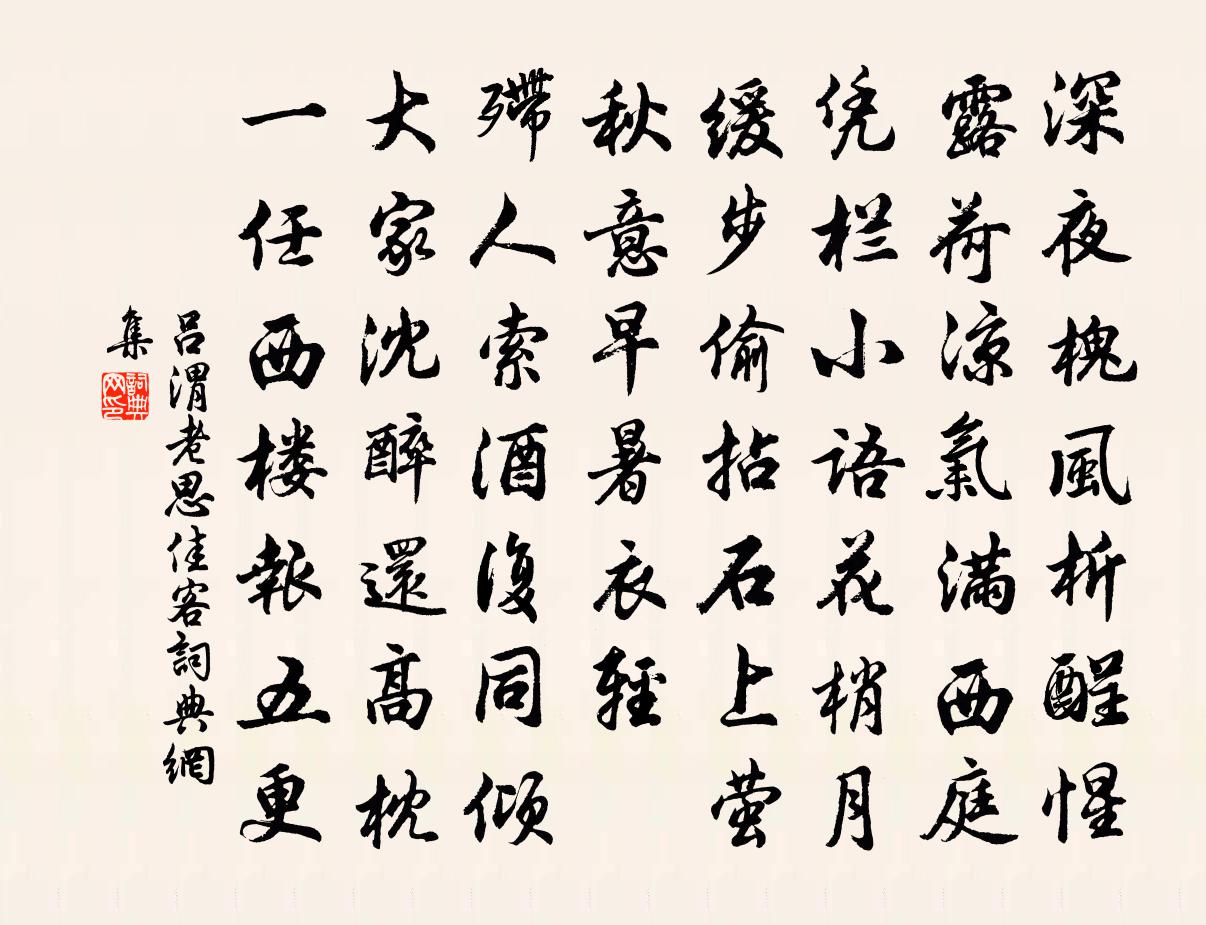 深夜槐風析酲惺
露荷涼氣滿西庭
凭栏小語花梢月
缓步偷拈石上萤
秋意早暑衣輕
殢人索酒復同倾
大家沈醉還高枕
一任西楼報五更
呂渭老思佳客詞典網
集
詞典网印